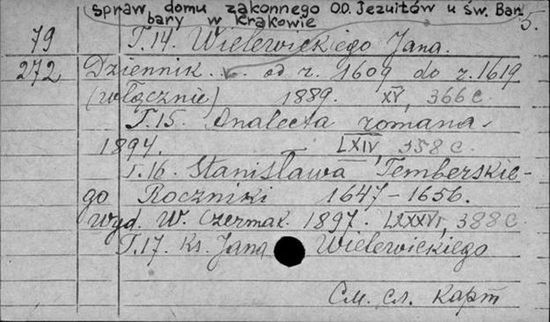 spraw domu zakonnego O.O. Jezuitów u św. Bar
bary w Krakowie 5.
79 T.14. Wielewickiego Jana.
272 Dziennik ... od r. 1609 do r. 1619
(włącznie) 1889. XV, 366 c.
T.15. Analecta romana.
1894. LXIV, 158 c.
T.16. Stanisława Temberskie-
go Roczniki 1647-1656.
Wyd. W. Czermak. 1897. LXXXVI, 388 c
T.17. Ks. Jana Wielewickiego
См. сл. карт